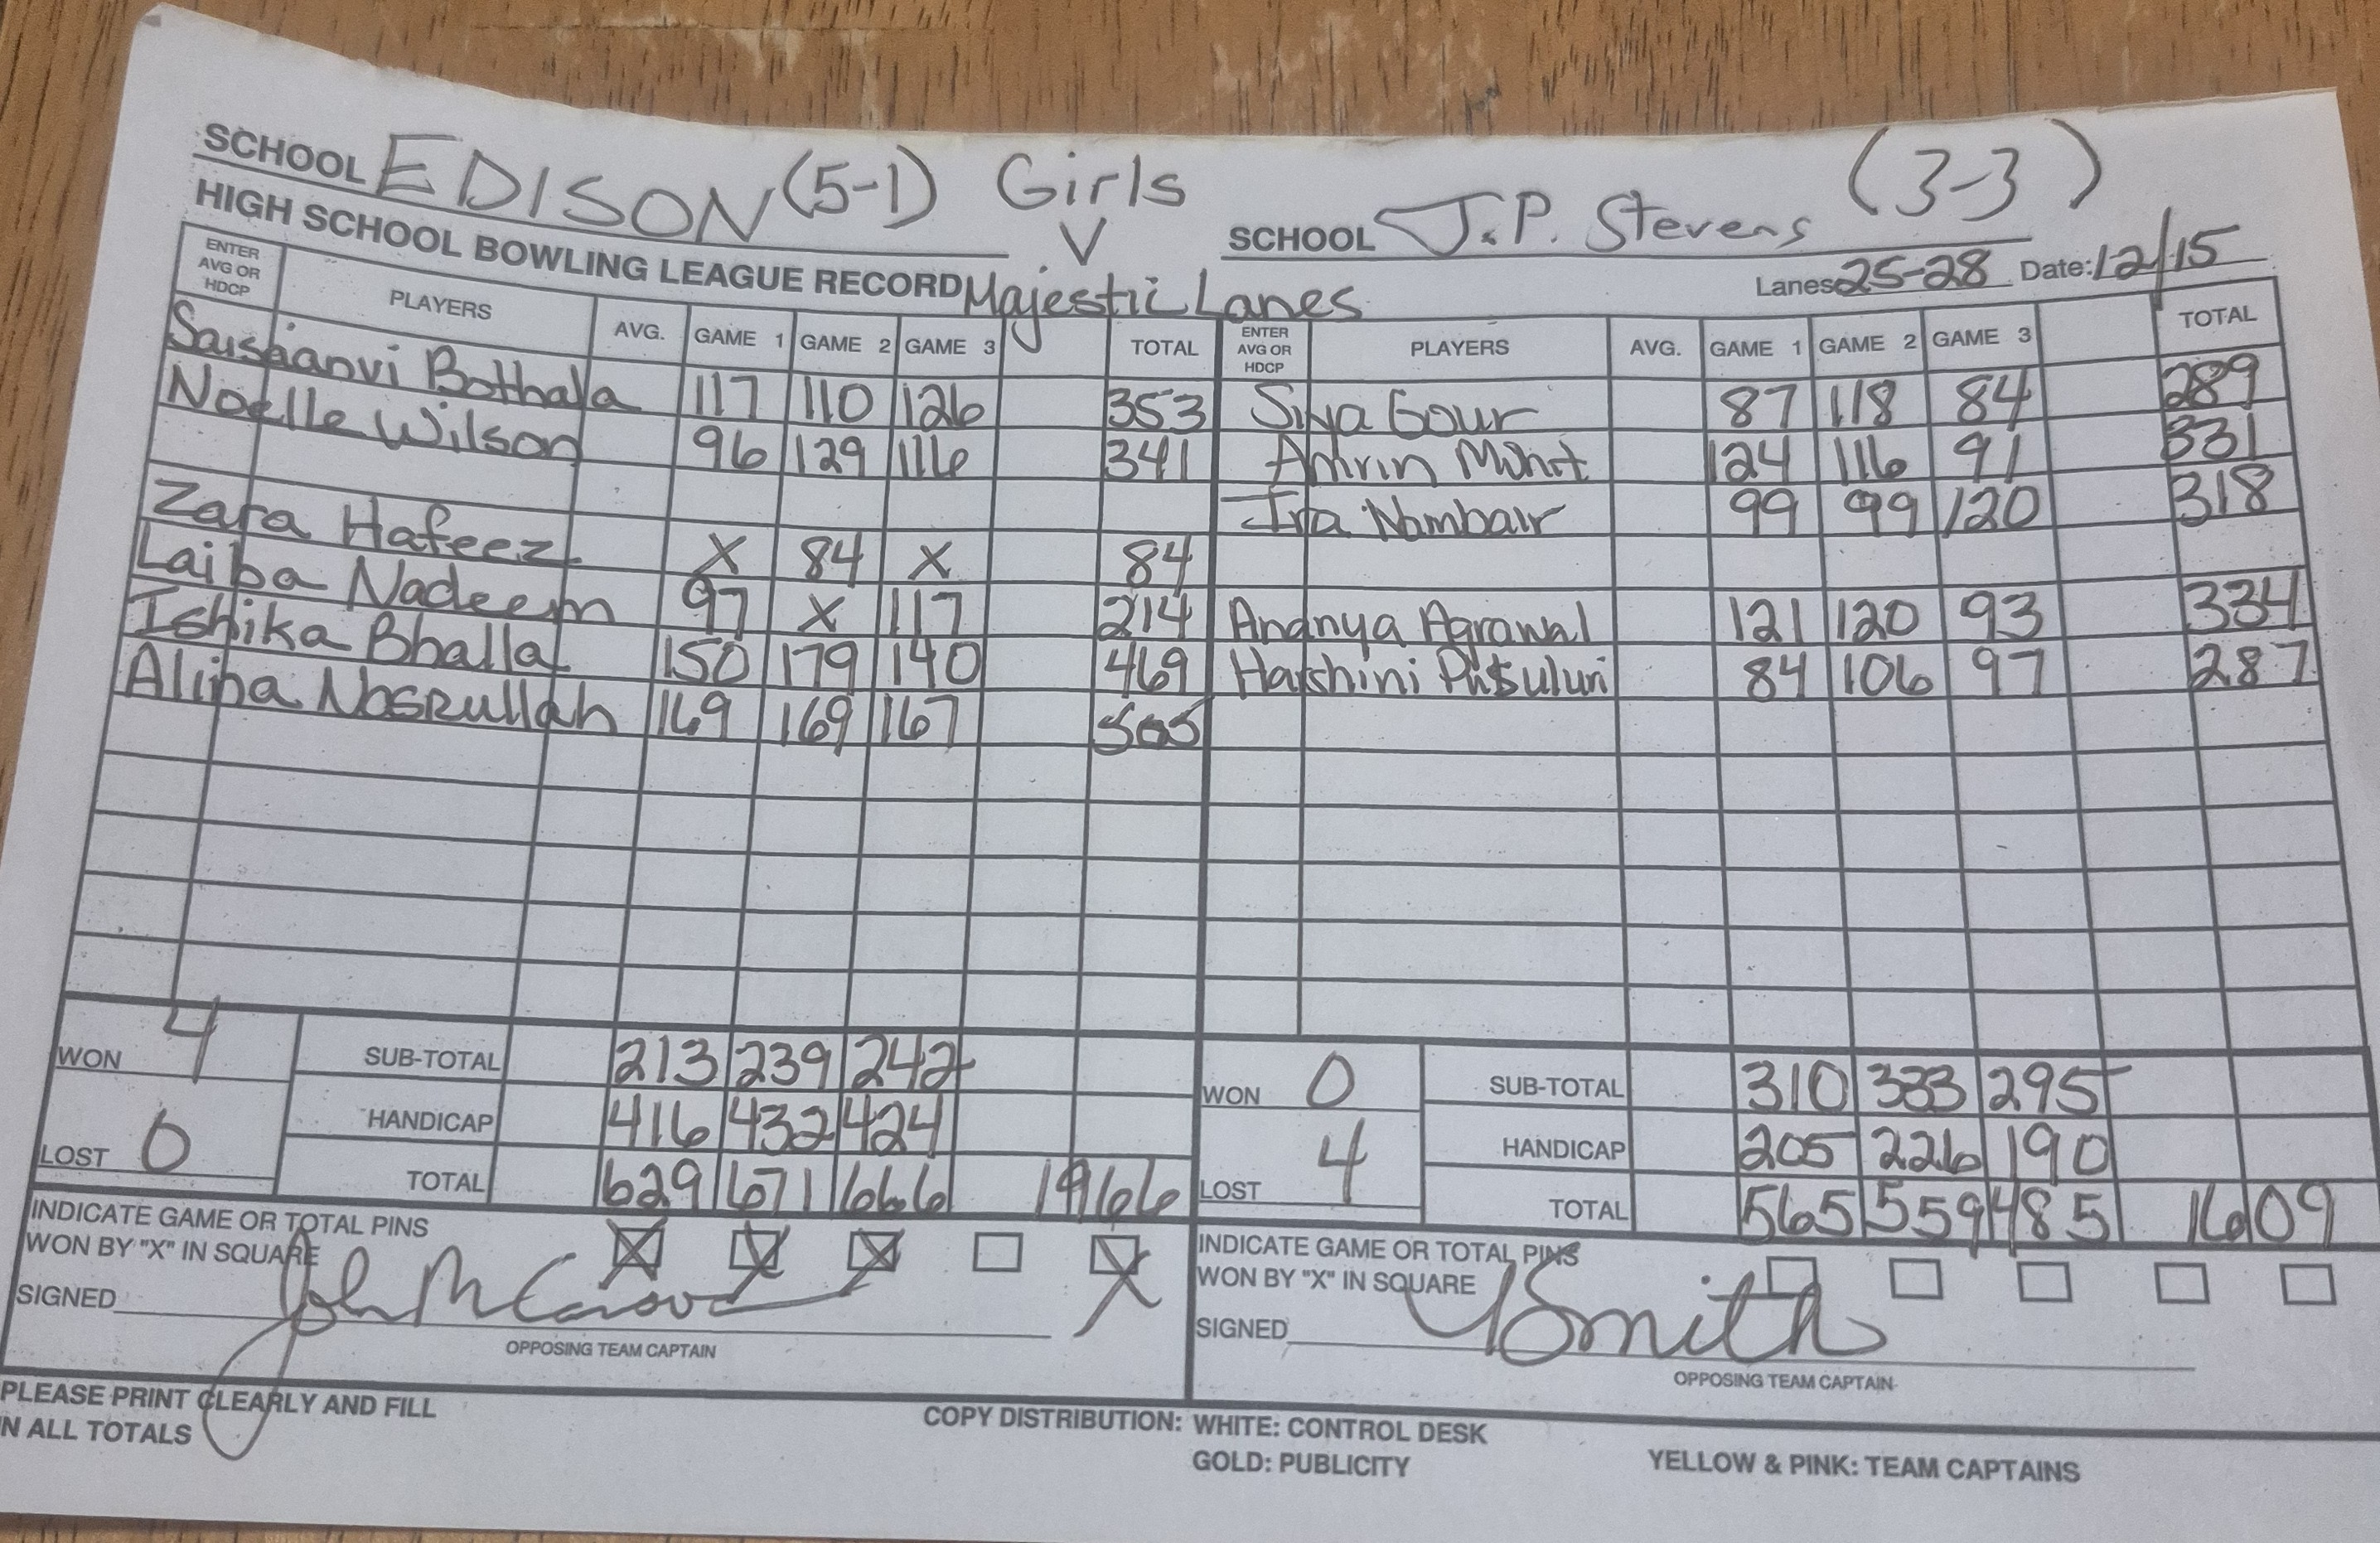 SCHOOL EDISON (5-1) Girls V SCHOOL J.P. Stevens (3-3)
HIGH SCHOOL BOWLING LEAGUE RECORD Majestic Lanes Lanes 25-28 Date: 12/15
ENTER AVG OR HDCP PLAYERS AVG. GAME 1 GAME 2 GAME 3 TOTAL ENTER AVG OR HDCP PLAYERS AVG. GAME 1 GAME 2 GAME 3 TOTAL
Saishanvi Bothala 117 110 126 353 Siya Gour 87 118 84 289
Noelle Wilson 96 129 116 341 124 116 91 331
Ira Nambair 99 99 120 318
Zara Hafeez X 84 X 84
Laiba Nadeem 97 X 117 214 Ananya Agrawal 121 120 93 334
Ishika Bhalla 150 179 140 469 Harshini 84 106 97 287
Aliba Nasrullah 169 169 167 505
WON 4 SUB-TOTAL 213 239 242 WON 0 SUB-TOTAL 310 333 295
HANDICAP 416 432 424 HANDICAP 205 226 190
LOST 0 TOTAL 629 671 666 1966 LOST 4 TOTAL 565 559 485 1609
INDICATE GAME OR TOTAL PINS INDICATE GAME OR TOTAL PINS
WON BY "X" IN SQUARE X X X X WON BY "X" IN SQUARE
SIGNED John SIGNED Smith
OPPOSING TEAM CAPTAIN OPPOSING TEAM CAPTAIN
PLEASE PRINT CLEARLY AND FILL
N ALL TOTALS
COPY DISTRIBUTION: WHITE: CONTROL DESK
GOLD: PUBLICITY YELLOW & PINK: TEAM CAPTAINS